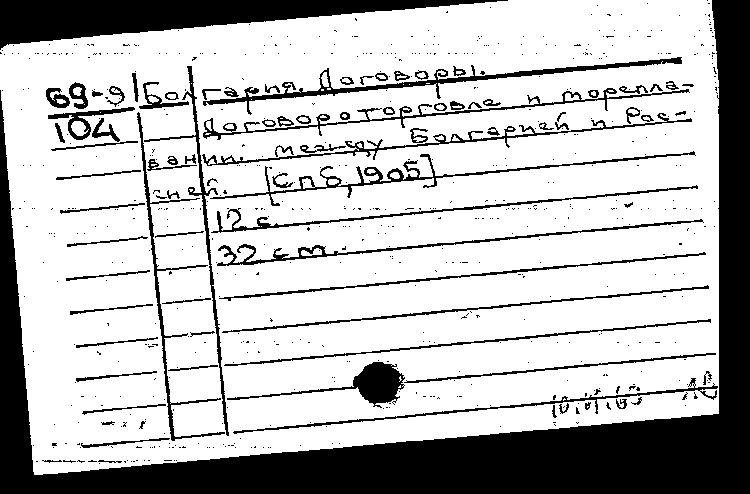 69-9 Болгария. Договоры.
104 Договор о торговле и морепла-
вании. между Болгарией и Рос-
сией. [Спб, 1905]
12 с.
32 см.